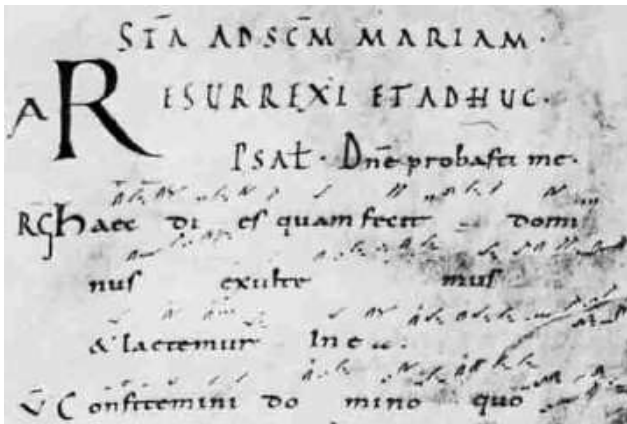 STA AD SCM MARIAM.
A RESURREXI ET ADHUC.
PSAL. Dne probasti me.
RG haec di es quam fecit domi
nus exulte mus
& laetemur In e a.
V Confitemini do mino quo